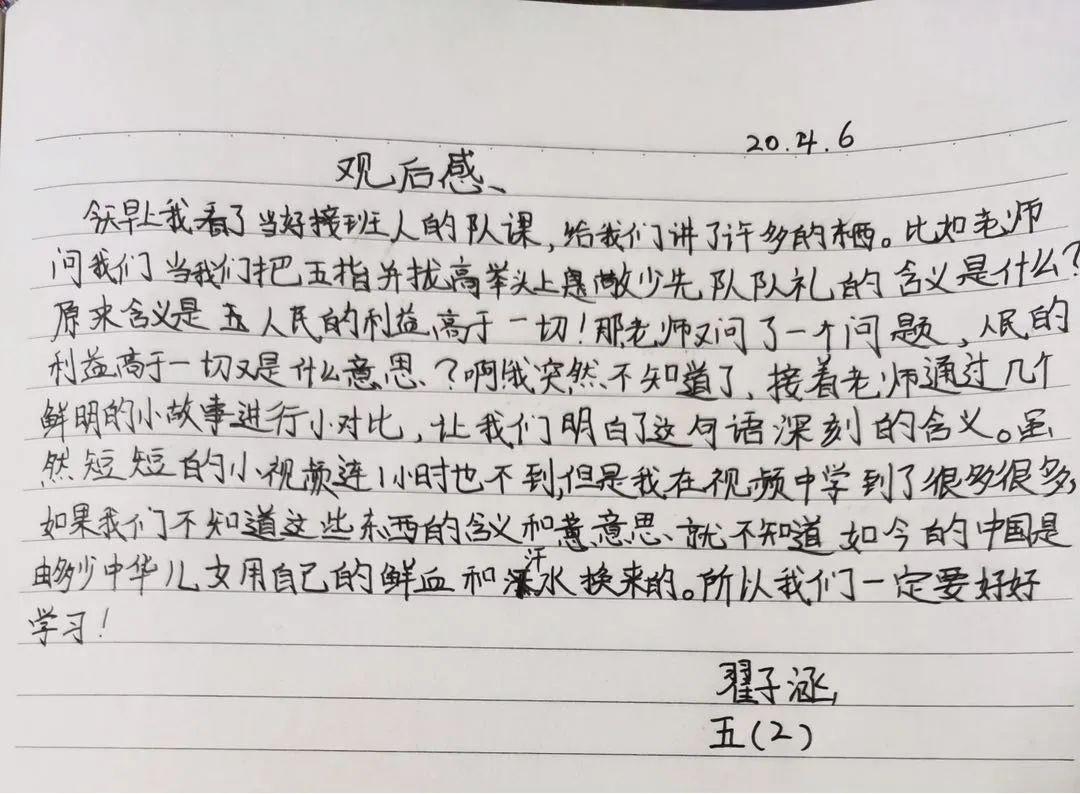 20.4.6
观后感、
今天早上我看了当好接班人的队课，给我们讲了许多的东西。比如老师
问我们当我们把五指并拢高举头上是敬少先队队礼的含义是什么？
原来含义是人民的利益高于一切！那老师又问了一个问题，人民的
利益高于一切又是什么意思、？啊我突然不知道了，接着老师通过几个
鲜明的小故事进行小对比，让我们明白了这句话深刻的含义。虽
然短短的小视频连1小时也不到，但是我在视频中学到了很多很多，
如果我们不知道这些东西的含义和意思、就不知道如今的中国是
由多少中华儿女用自己的鲜血和汗水换来的。所以我们一定要好好
学习！
翟子涵
五(2)